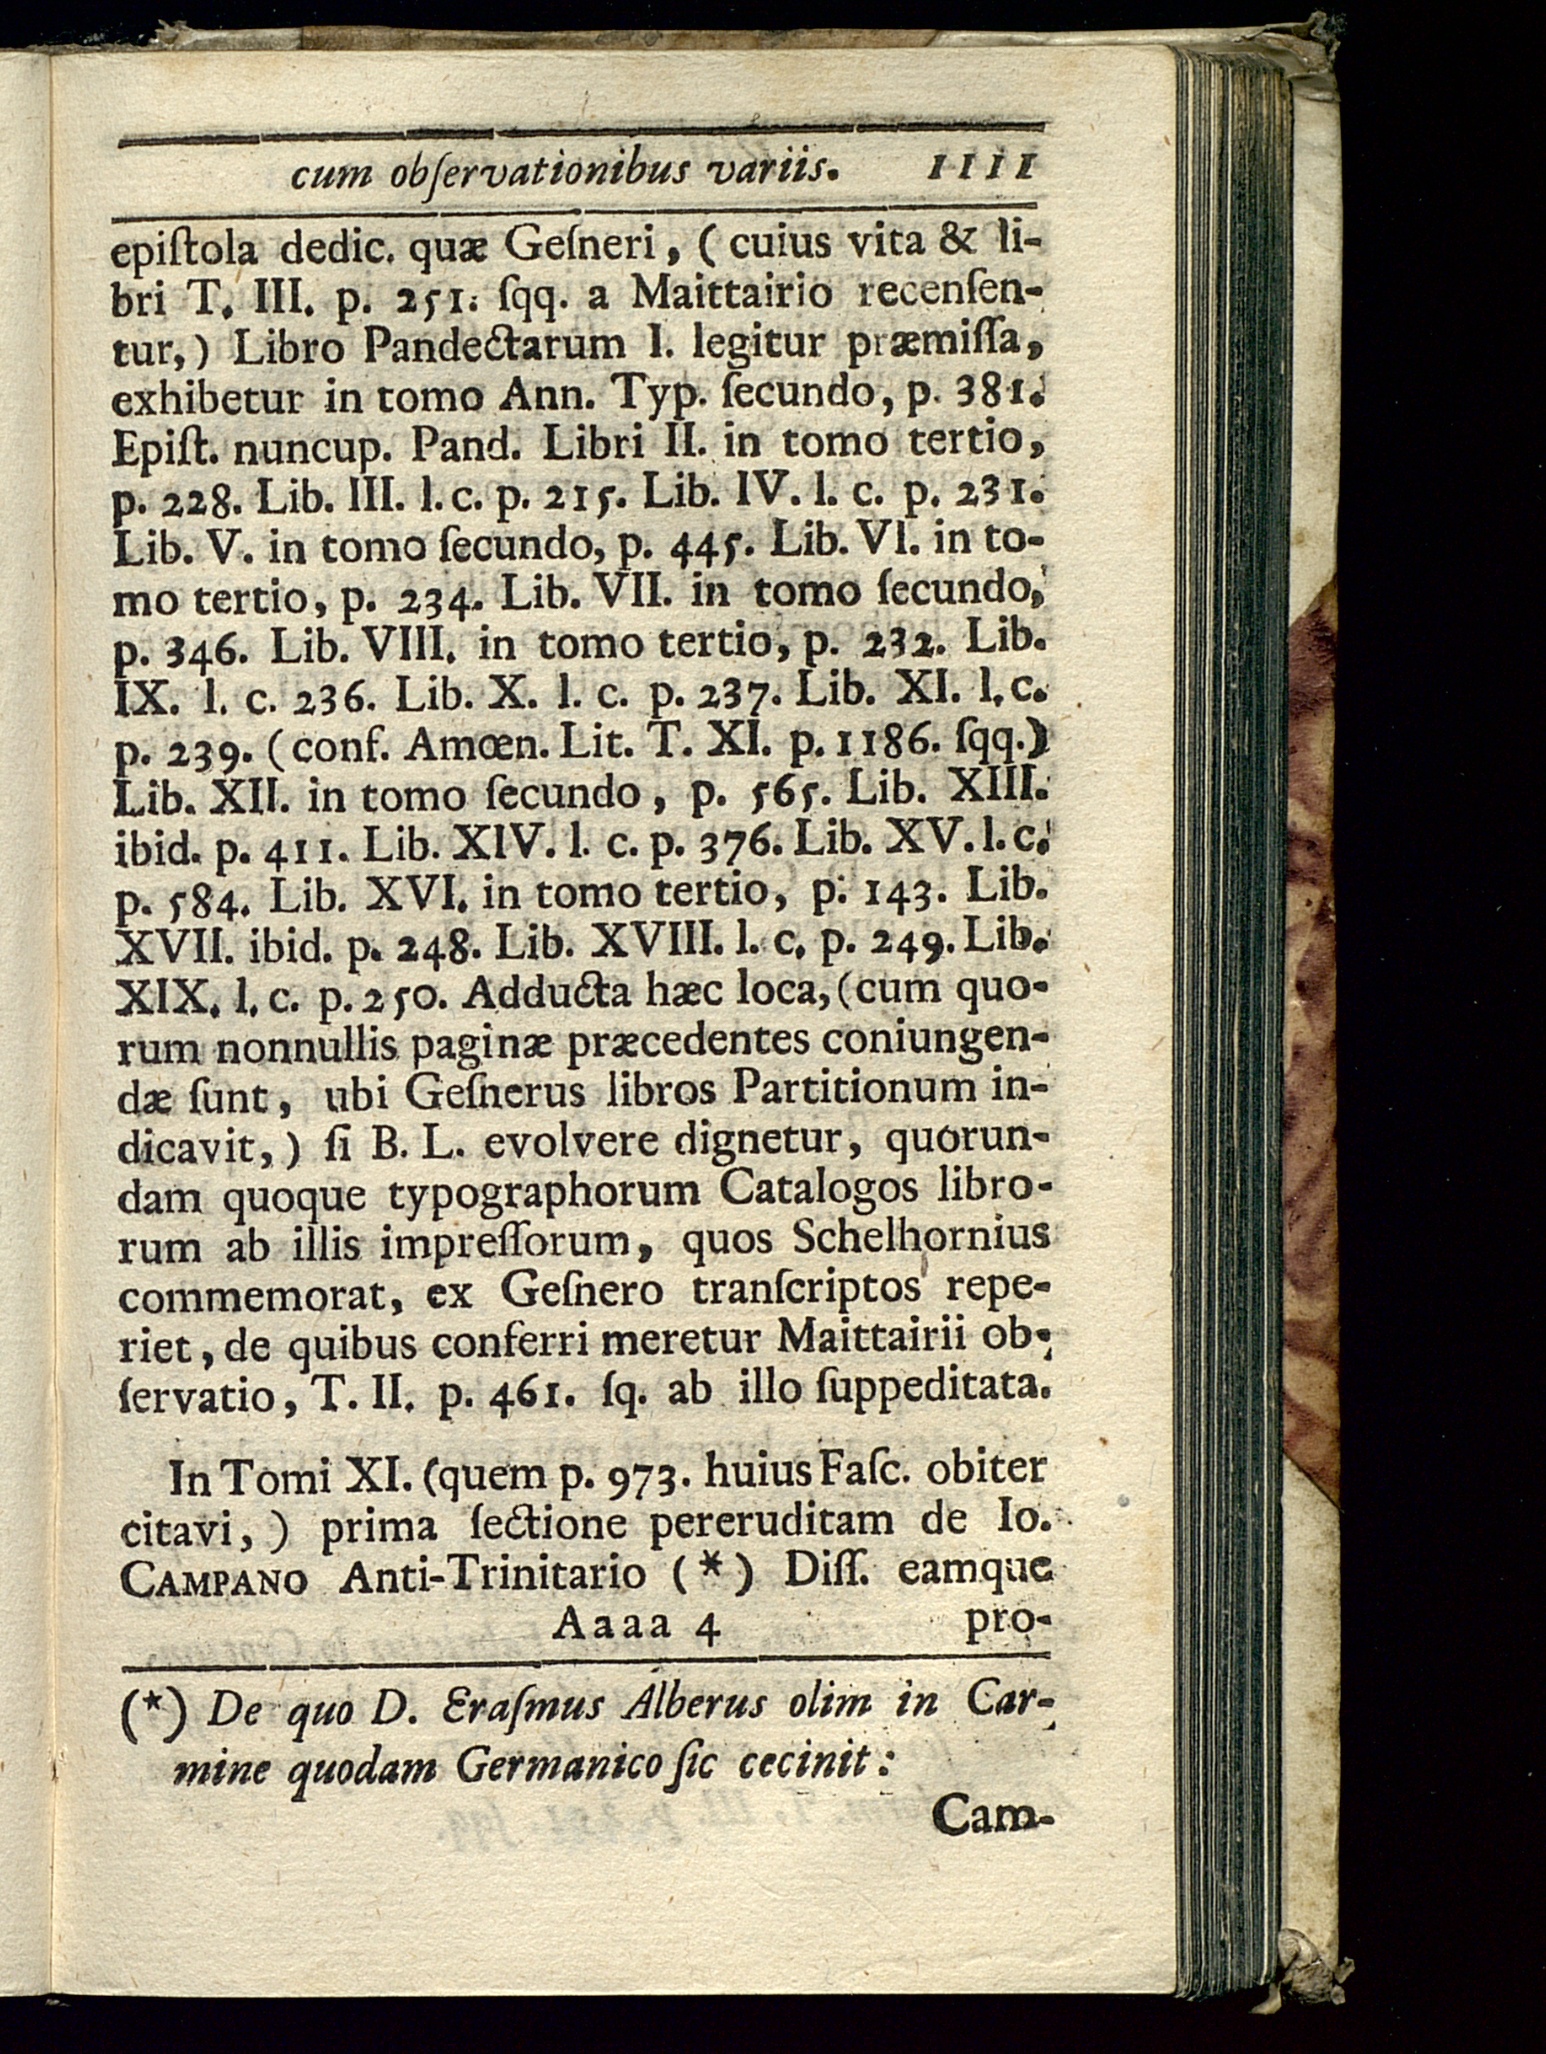 cum obſervationibus variis. 1111
epiſtola dedic. quæ Geſneri, (cuius vita & li-
bri T. III. p. 251. ſqq. a Maittairio recenſen-
tur,) Libro Pandectarum I. legitur præmiſſa,
exhibetur in tomo Ann. Typ. ſecundo, p. 381.
Epiſt. nuncup. Pand. Libri II. in tomo tertio,
p. 228. Lib. III. l. c. p. 215. Lib. IV. l. c. p. 231.
Lib. V. in tomo ſecundo, p. 445. Lib. VI. in to-
mo tertio, p. 234. Lib. VII. in tomo ſecundo,
p. 346. Lib. VIII. in tomo tertio, p. 232. Lib.
IX. l. c. 236. Lib. X. l. c. p. 237. Lib. XI. l. c.
p. 239. (conf. Amœn. Lit. T. XI. p. 1186. ſqq.)
Lib. XII. in tomo ſecundo, p. 565. Lib. XIII.
ibid. p. 411. Lib. XIV. l. c. p. 376. Lib. XV. l. c.
p. 584. Lib. XVI. in tomo tertio, p. 143. Lib.
XVII. ibid. p. 248. Lib. XVIII. l. c. p. 249. Lib.
XIX. l. c. p. 250. Adducta hæc loca, (cum quo-
rum nonnullis paginæ præcedentes coniungen-
dæ ſunt, ubi Geſnerus libros Partitionum in-
dicavit,) ſi B. L. evolvere dignetur, quorun-
dam quoque typographorum Catalogos libro-
rum ab illis impreſſorum, quos Schelhornius
commemorat, ex Geſnero tranſcriptos repe-
riet, de quibus conferri meretur Maittairii ob-
ſervatio, T. II. p. 461. ſq. ab illo ſuppeditata.
In Tomi XI. (quem p. 973. huius Faſc. obiter
citavi,) prima ſectione pereruditam de Io.
CAMPANO Anti-Trinitario (*) Diſſ. eamque
Aaaa 4 pro-
(*) De quo D. Eraſmus Alberus olim in Car-
mine quodam Germanico ſic cecinit:
Cam-